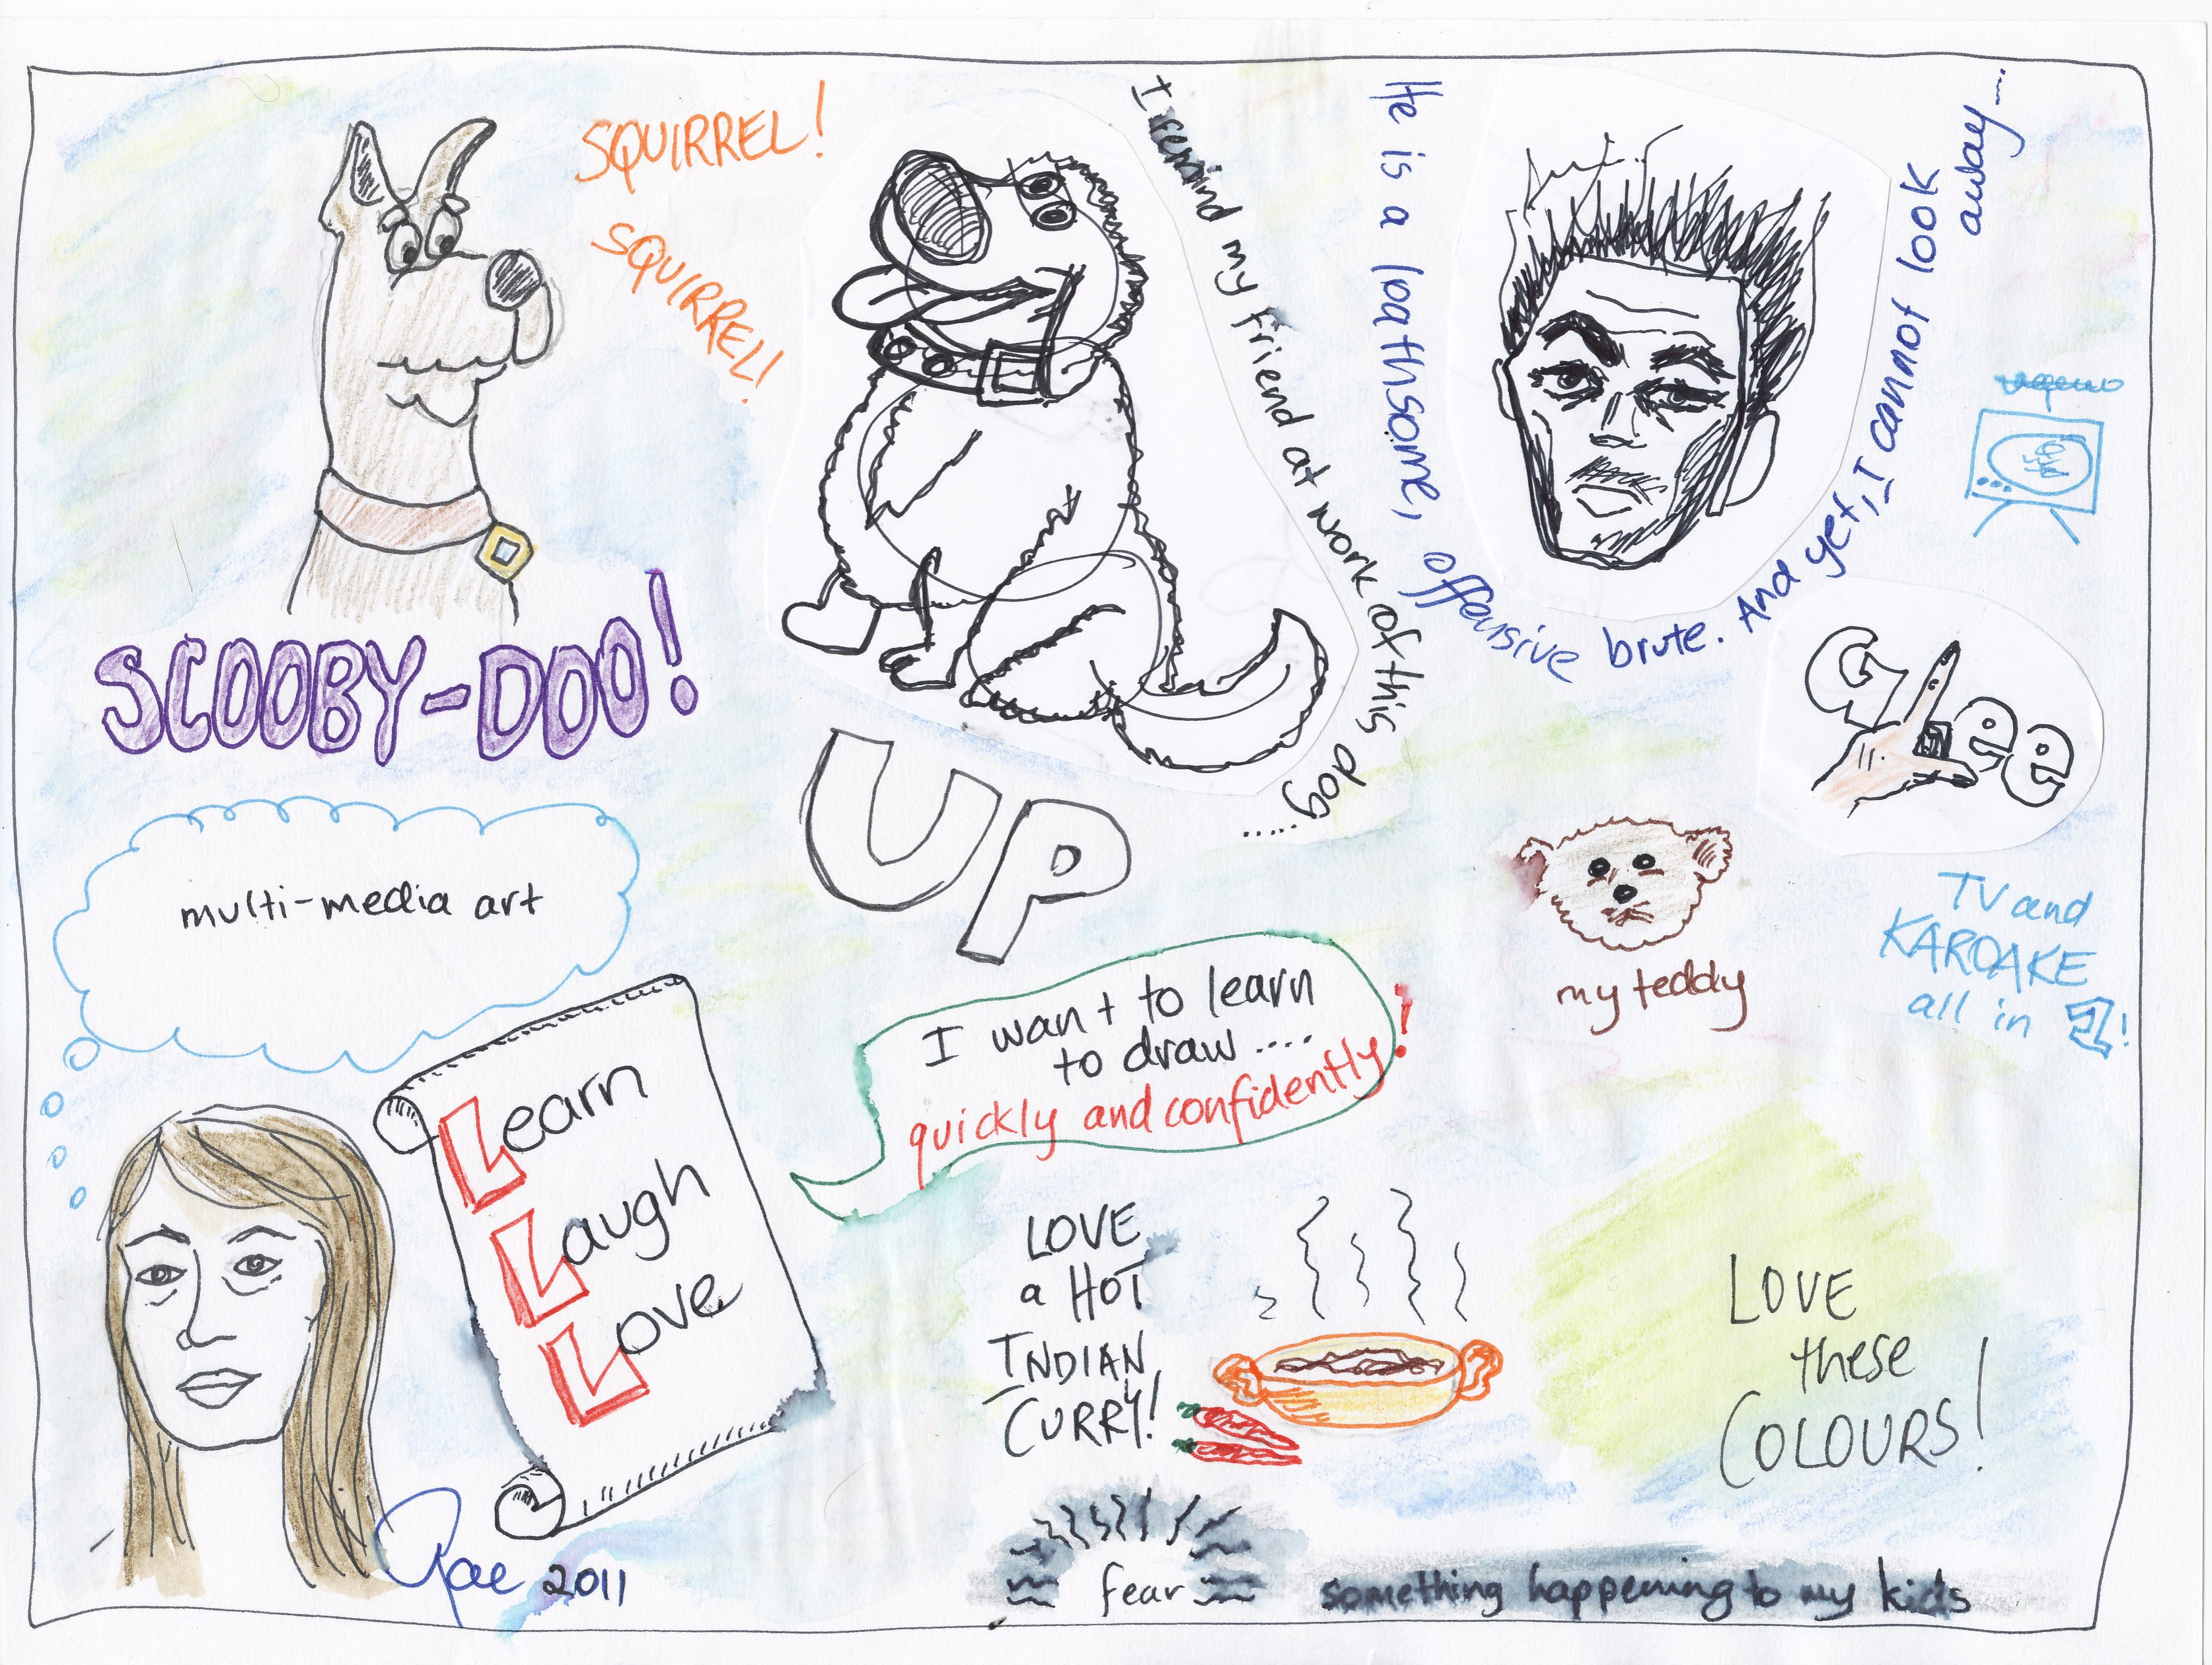 SQUIRREL!
SQUIRREL!
SCOOBY-DOO!
I remind my friend at work of this dog.....
UP
He is a loathsome, offensive brute. And yet, I cannot look
away....
Glee
TV and
KAROAKE
all in 1!
my teddy
multi-media art
Learn
Laugh
Love
I want to learn
to draw ....
quickly and confidently!
LOVE
a HOT
INDIAN
CURRY!
LOVE
these
COLOURS!
Rae 2011
fear
something happening to my kids